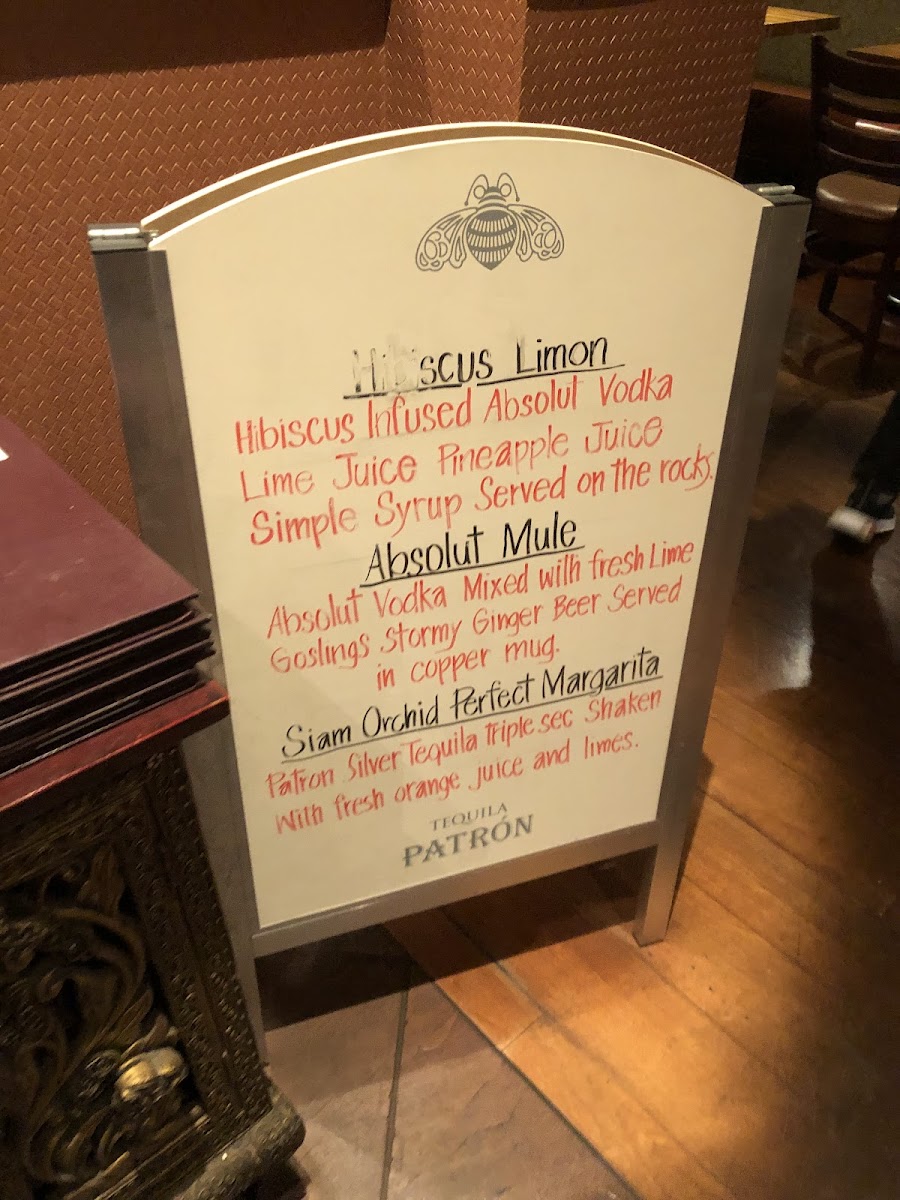 Hibiscus Limon
Hibiscus Infused Absolut Vodka
Lime Juice Pineapple Juice
Simple Syrup Served on the rocks.
Absolut Mule
Absolut Vodka Mixed with fresh Lime
Goslings Stormy Ginger Beer Served
in copper mug.
Siam Orchid Perfect Margarita
Patron Silver Tequila triple sec Shaken
With fresh orange juice and limes.
TEQUILA
PATRÓN